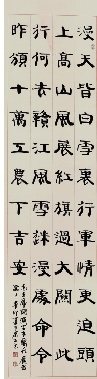 漫天皆白雪裏行軍情更迫頭
上高山風展紅旗過大關此
行何去贛江風雪迷漫處命令
昨頒十萬工農下吉安